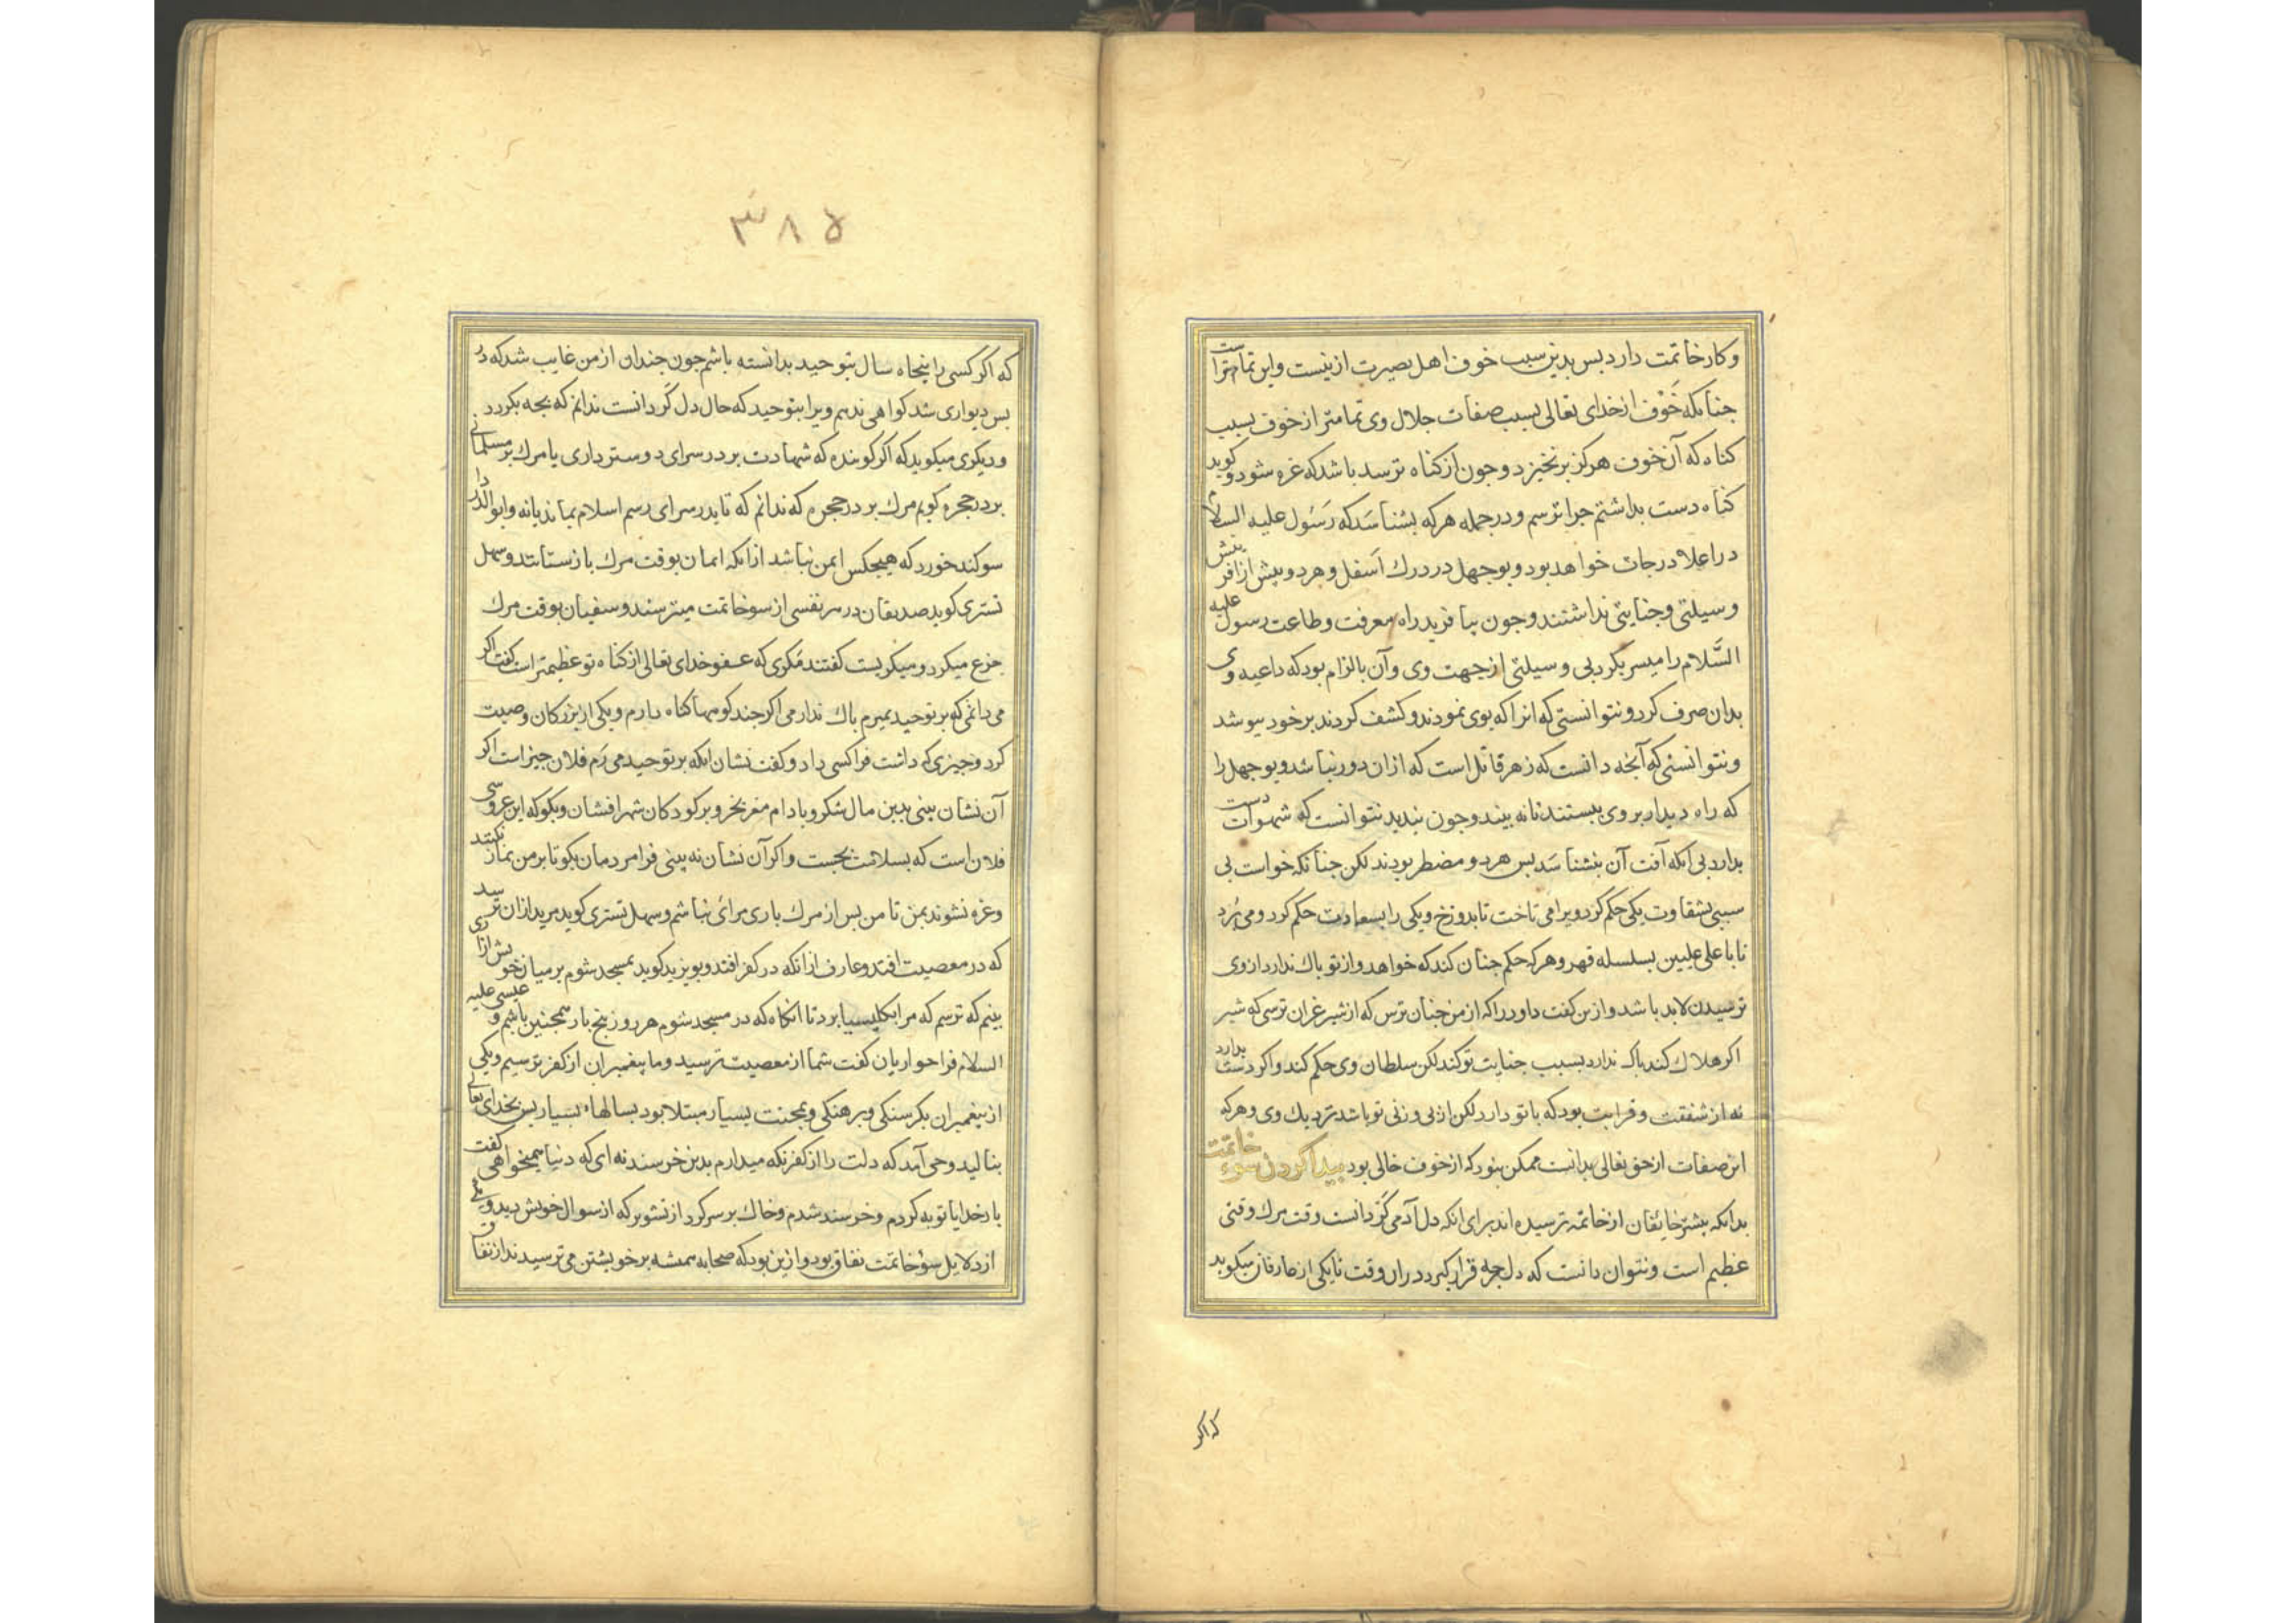 و کار خاتمت دارد بس بدین سبب خوف اهل بصیرت ازینست و این تمام‌تر است
جنانکه خَوْف از خدای تعالی بسبب صفات جلال وی تمامتر از خوف بسبب
کناه که آن خوف هرکز برنخیزد و جون از کناه ترسد باشد که غره شود و کوید
کناه دست بداشتم جرا ترسم و در جمله هرکه بشناسَد که رَسُول علیه السلام
در اعلا درجات خواهد بود و بوجهل در درک اَسفل و هر دو بیش از آفرینش
وسیلتی و جنایتی نداشتند و جون بیافرید راه معرفت و طاعت رسول علیه
السَّلام را میسر بکرد بی وسیلتی از جهت وی و آن بالزام بود که داعیه وی
بدان صرف کرد و نتوانستی که انرا که بوی نمودند و کشف کردند بر خود بپوشد
و نتوانستی که آنجه دانست که زهر قاتل است که ازان دور نباشد و بوجهل را
که راه دیدار بر وی ببستند تا نه بیند و جون ندید نتوانست که شهوات دست
بدارد بی آنکه آفت آن بشناسَد بس هر دو مضطر بودند لکن جنانکه خواست بی
سببی بشقاوت یکی حکم کرد و ویرا می تاخت تا بدوزخ و یکی را بسعادت حکم کرد و می بُرد
تا با علی علیین بسلسله قهر و هرکه حکم جنان کند که خواهد و از تو باک ندارد از وی
ترسیدن لابد باشد و ازین کفت داود را که از من جنان ترس که از شیر غران ترسی که شیر
اکر هلاک کند باک ندارد بسبب جنایت تو کند لکن سلطان وی حکم کند و اکر دست بدارد
نه از شفقت و قرابت بود که با تو دارد لکن از بی وزنی تو باشد نزدیک وی و هرکه
این صفات از حق تعالی بدانست ممکن نبود که از خوف خالی بود بیدا کردن سوء خاتمت
بدانکه بیشتر خایفان از خاتمه ترسیده اند برای آنکه دل آدمی کَردانست و وقت مرک وقتی
عظیم است و نتوان دانست که دل بجه قرار کیرد دران وقت تا یکی از عارفان میکوید
که اکر
۳۸۵
که اکر کسی را بنجاه سال بتوحید بدانسته باشم جون جندان از من غایب شد که در
بس دیواری شد کواهی ندهم ویرا بتوحید که حال دل کَردانست ندانم که بجه بکردد
و دیکری میکوید که اکر کویند که شهادت بر در سرای دوستر داری یا مرک بر مسلمانی
بر در حجره کویم مرک بر در حجره که ندانم که تا بدر سرای رسم اسلام بماند یا نه و ابوالدردا
سوکند خورد که هیجکس ایمن نباشد از آنکه ایمان بوقت مرک باز ستانند و سهل
تستری کوید صدیقان در هر نفسی از سو خاتمت میترسند و سفیان بوقت مرک
جزع میکرد و میکریست کفتند مَکری که عفو خدای تعالی از کناه تو عظیمتر است کفت اکر
می دانمی که بر توحید بمیرم باک ندارمی اکر جند کوهها کناه دارم و یکی از بزرکان وصیت
کرد و جیزی که داشت فرا کسی داد و کفت نشان آنکه بر توحید می رَم فلان جیز است اکر
آن نشان بینی بدین مال شکر و بادام مغز بخر و بر کودکان شهر افشان و بکو که این عروسی
فلان است که بسلامت بجست و اکر آن نشان نه بینی فرا مردمان بکو تا بر من نماز نکنند
و غره نشوند بمن تا من بس از مرک باری مرائی نباشم و سهل تستری کوید مرید ازان ترسد
که در معصیت افتد و عارف از آنکه در کفر افتد و بویزید کوید بمسجد شوم بر میان خویش زناری
بینم که ترسم که مرا بکلیسیا برد تا آنکاه که در مسجد شوم هر روز بنج بار همجنین باشم و عیسی علیه
السلام فرا حواریان کفت شما از معصیت ترسید و ما بیغمبران از کفر ترسیم و یکی
از بیغمبران بکرسنکی و برهنکی و بمحنت بسیار مبتلا بود بسالهاء بسیار بس بخدای تعالی
بنالید وحی آمد که دلت را از کفر نکه میدارم بدین خرسند نه ای که دنیا میخواهی کفت
بار خدایا توبه کردم و خرسند شدم و خاک بر سر کرد از تشویر که از سوال خویش بدید و یکی
از دلایل سوُ خاتمت نفاق بود و ازین بود که صحابه همیشه بر خویشتن می ترسیدند از نفاق